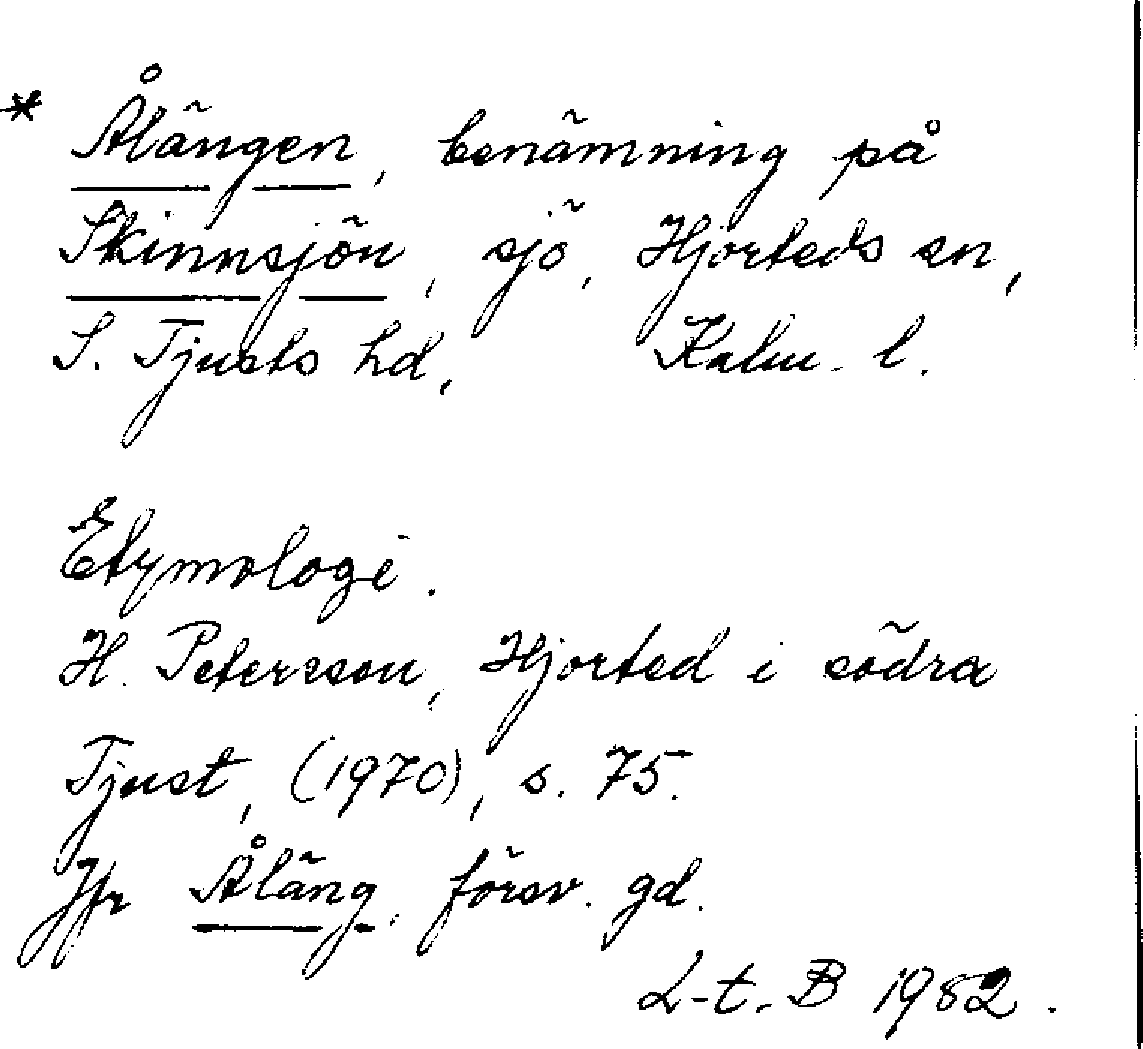 * Ålängen, benämning på
Skinnsjön, sjö, Hjorteds sn,
S. Tjusts hd, Kalm. l.
Etymologi.
H. Petersson, Hjorted i södra
Tjust, (1970), s. 75.
Jfr Åläng, försv. gd.
L-t. B 1982.